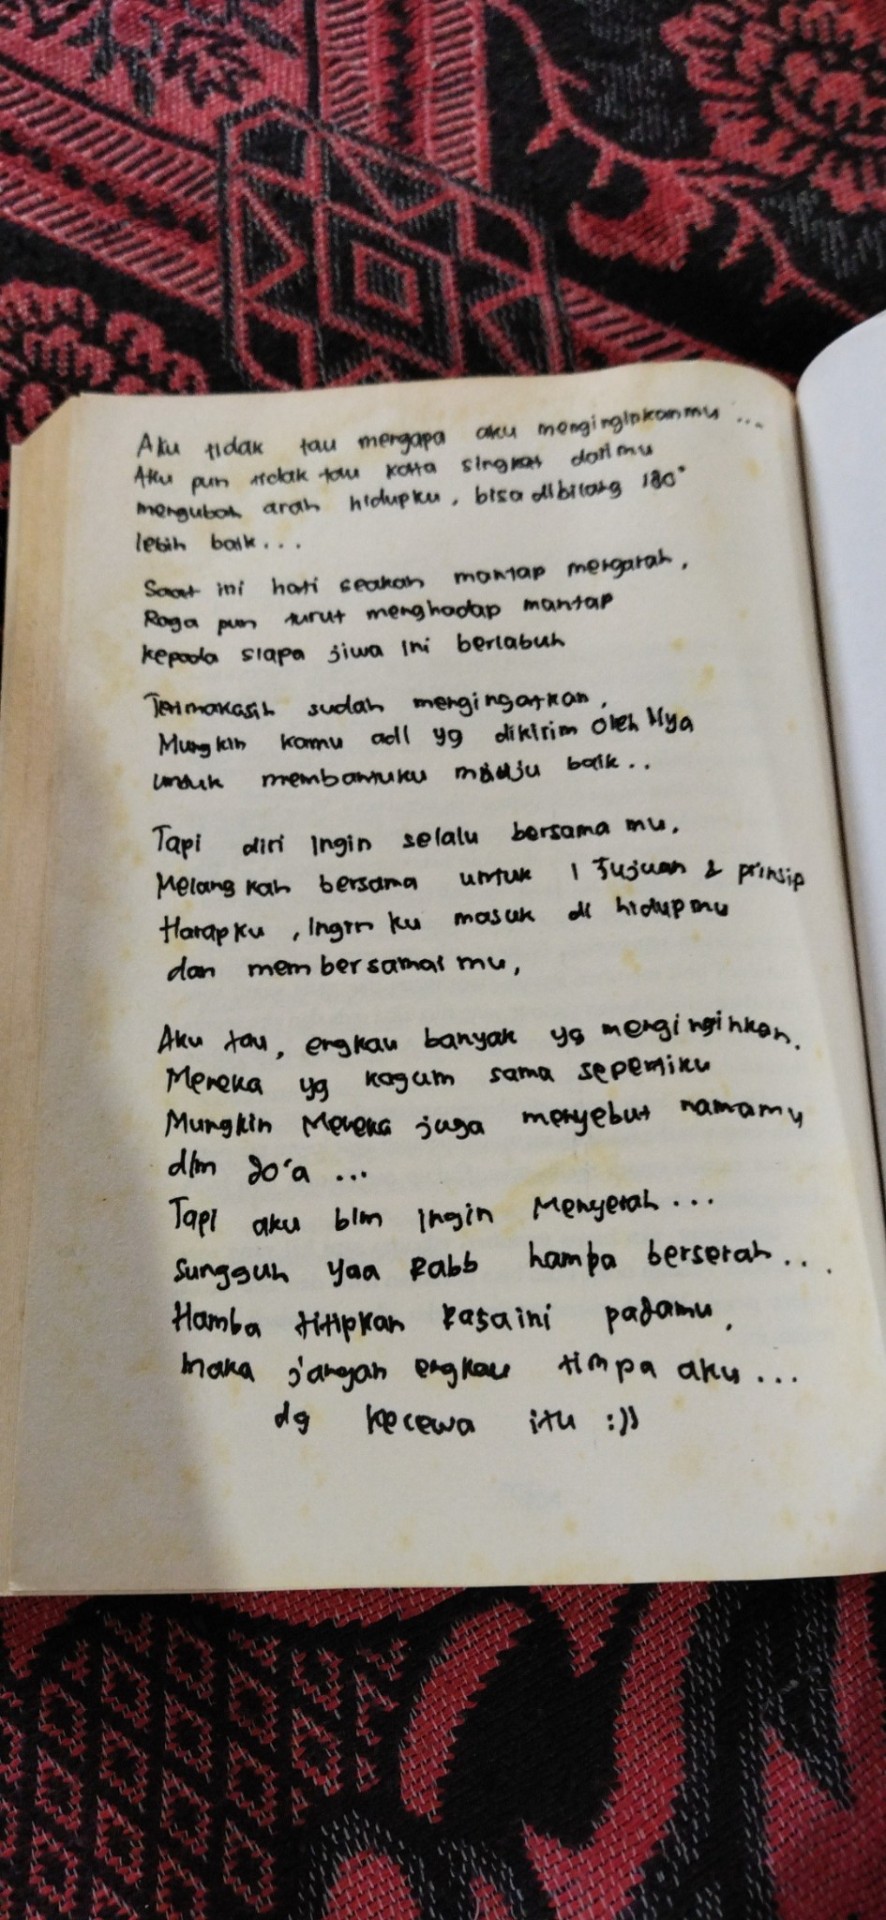 Aku tidak tau mengapa aku menginginkanmu ...
Aku pun tidak tau kata singkat darimu
mengubah arah hidupku, bisa dibilang 180°
lebih baik...
Saat ini hati seakan mantap mengarah,
Raga pun turut menghadap mantap
kepada siapa jiwa ini berlabuh
Terimakasih sudah mengingatkan,
Mungkin kamu adl yg dikirim oleh Nya
untuk membantuku menuju baik..
Tapi diri ingin selalu bersama mu,
Melangkah bersama untuk 1 Tujuan & prinsip
Harapku, Ingin ku masuk di hidupmu
dan membersamai mu,
Aku tau, engkau banyak yg menginginkan.
Mereka yg kagum sama sepertiku
Mungkin Mereka juga menyebut namamu
dlm do'a ...
Tapi aku blm ingin Menyerah...
Sungguh yaa Rabb hamba berserah...
Hamba titipkan Rasa ini padamu,
maka jangan engkau timpa aku...
dg kecewa itu :))